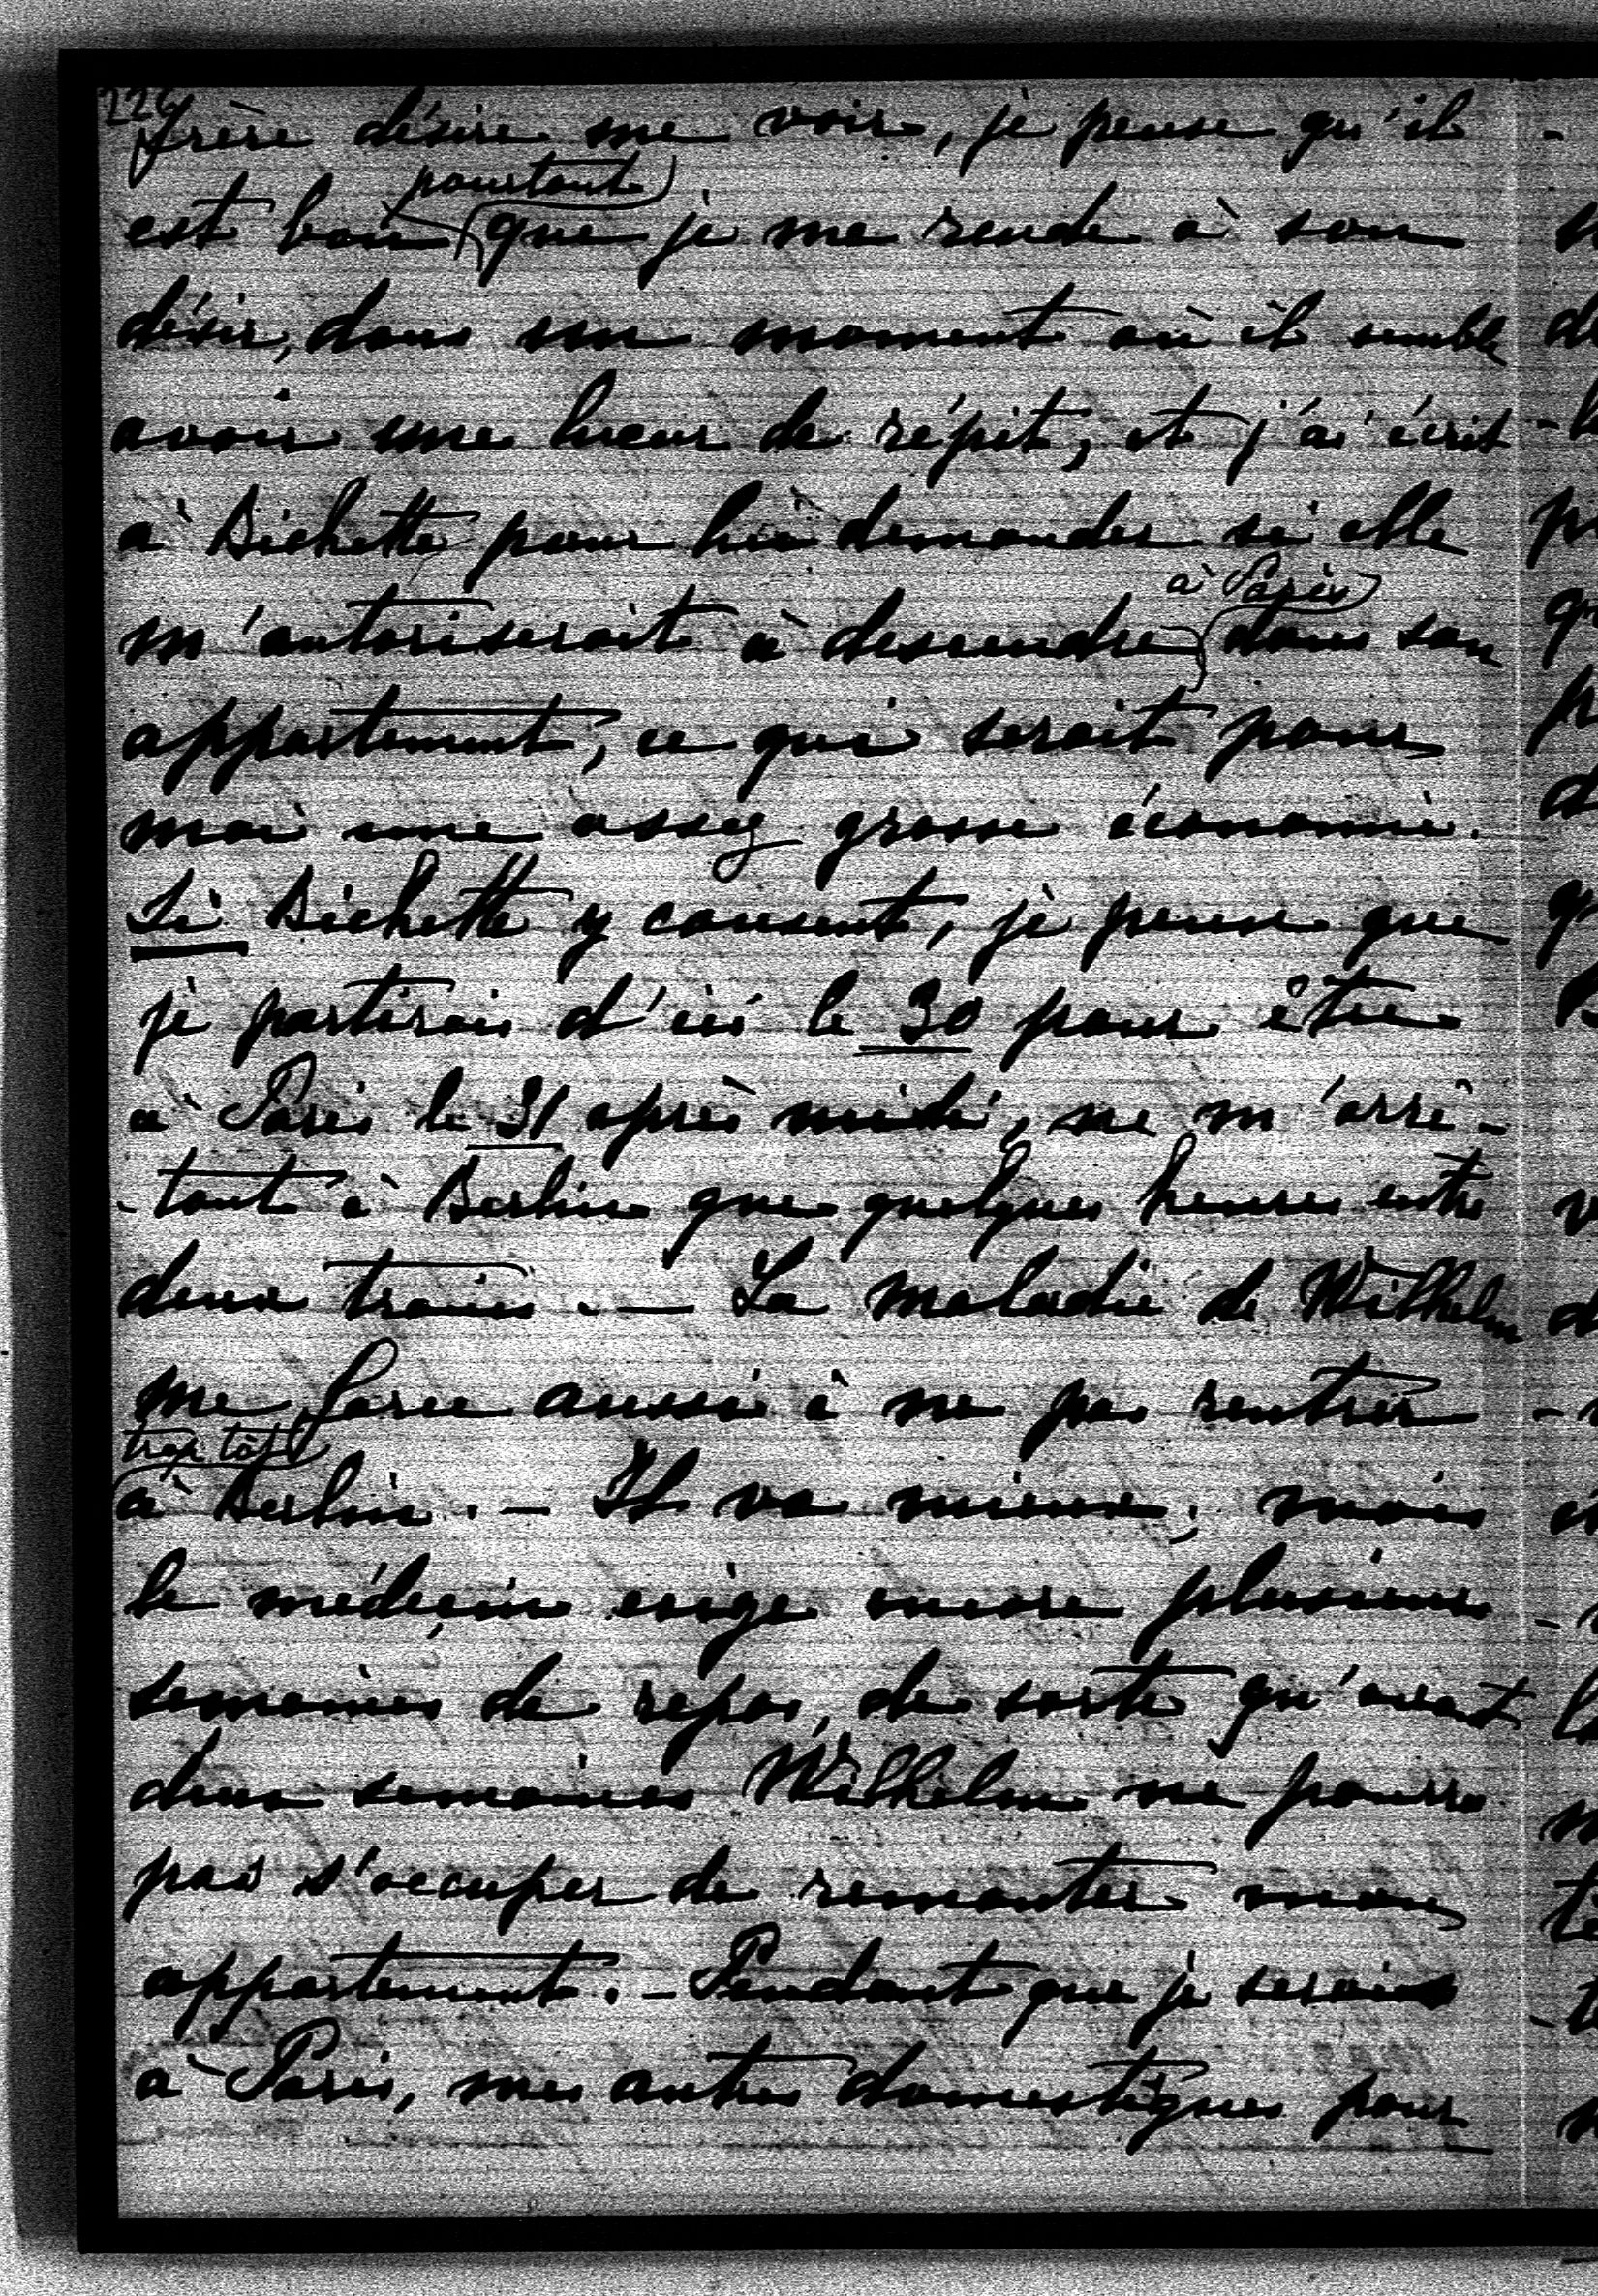 226
frère désire me voir, je pense qu'il
pourtant
est bon que je me rende à son
désir, dans un moment où il semble
avoir une lueur de répit, et j'ai écrit
à Bichette pour lui demander si elle
à Paris
m'autoriserait à descendre dans son
appartement, ce qui serait pour
moi une assez grosse économie.
Si Bichette y consent, je pense que
je partirais d'ici le 30 pour être
à Paris le 31 après midi, ne m'arrê-
-tant à Berlin que quelques heures entre
deux trains. — La maladie de Wilhelm
me force aussi à ne pas rentrer
trop tôt
à Berlin. — Il va mieux, mais
le médecin exige encore plusieurs
semaines de repos, de sorte qu'avant
deux semaines Wilhelm ne pourra
pas s'occuper de remonter mon
appartement. — Pendant que je serais
à Paris, mes autres domestiques pour